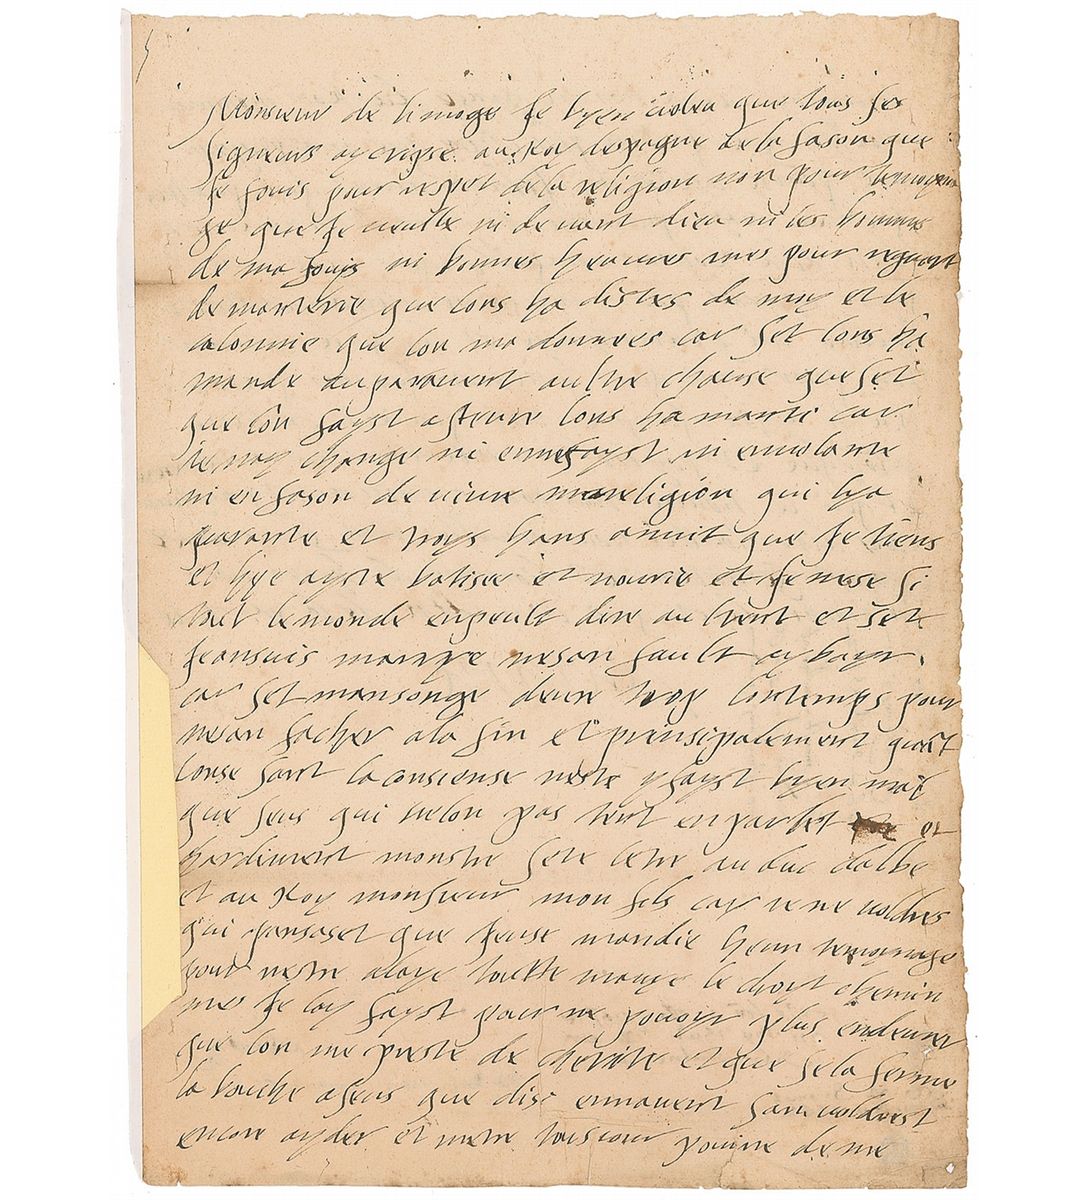 Monsieur de limoge Je byen voleu que tous ses
signeurs ay cripse au Roy despagne de la fason que
Je souis pour respet de la religion non pour temoyna
ge que Je veulle ni de vant dieu ni les hommes
de ma fouy ni bonnes heuvres mes pour reguart
de manterie que lons ha distes de moy et le
calomnie que lon ma donnees car set lons ha
mande auparavent aultre chause que set
que lon fayst asteure lons ha manti car
je nay change ni enn efayst ni envolante
ni en fason de vivre ma religion qui hya
quarante et troys hans anuit que Je tiens
et hye aystre batisee et nourie et Je ne se si
tout le monde enpeult dire aultent et sete
Jeansuis marrye nesan fault aybayr
car set mansonge deure trop lontemps pour
nesan facher ala fin et prinsipalement quant
lonse sant la consiense neste y fayst byen mal
que seus qui nelon pas tent enparlet et
herdiment monstre sete letre au duc dalbe
et au Roy monsieur mon fils car je ne voldres
qui pansaset que Jeuse mandie heun temognage
pour nestre alaye toutte mavye le droyt chemin
mes Je lay fayst pour ne pouoyr plus endeurer
que lon me preste de cherite et que sela ferme
la bouche aseus que disi ennavent sanvoldrest
encore ayder et metre tousiour poinne de me